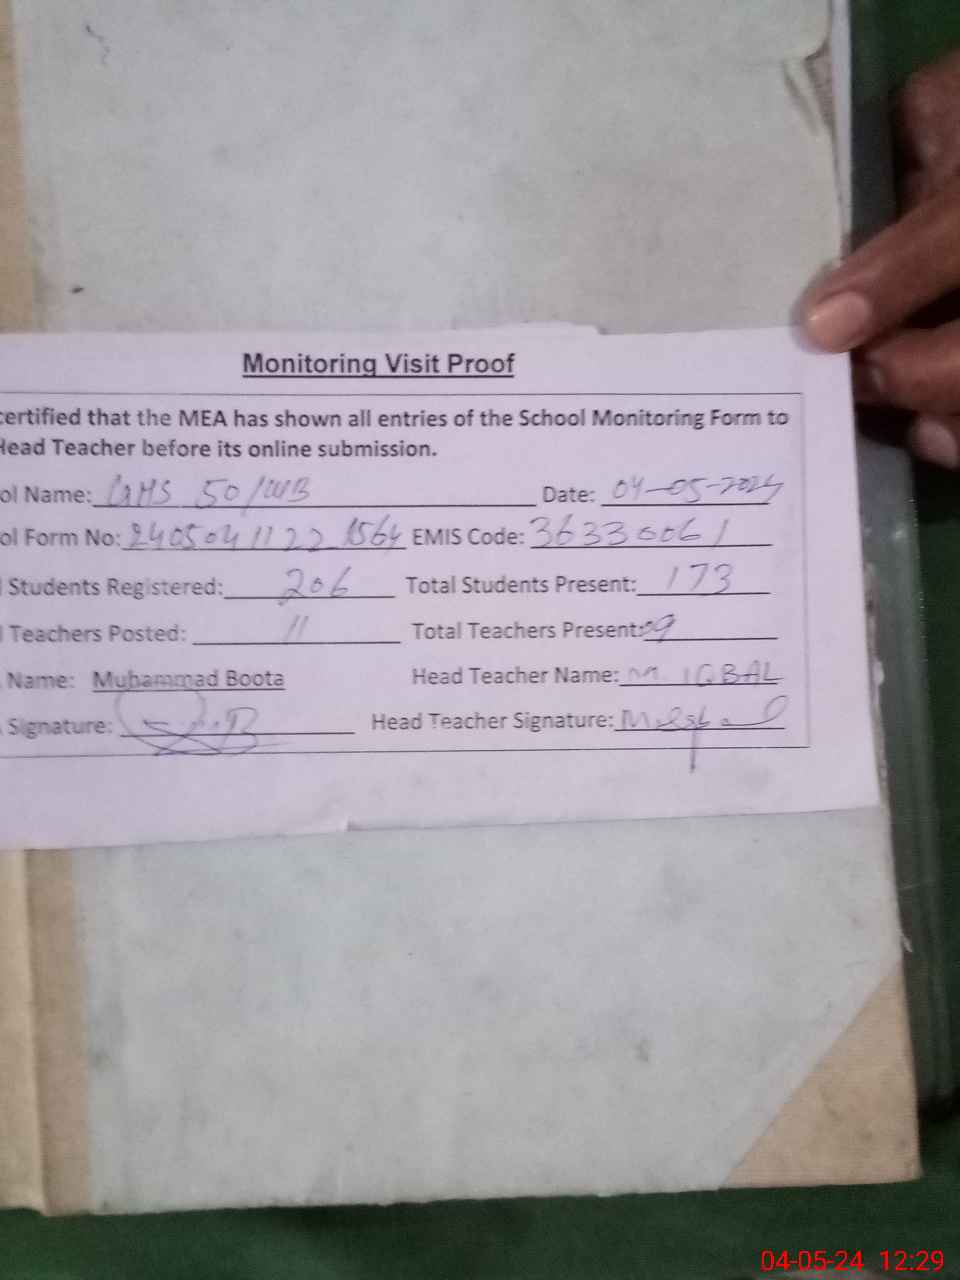 Monitoring Visit Proof
certified that the MEA has shown all entries of the School Monitoring Form to
Head Teacher before its online submission.
ol Name: GHS 50/WB Date: 04-05-2024
ol Form No: 2405041122 1564 EMIS Code: 36330061
l Students Registered: 206 Total Students Present: 173
l Teachers Posted: 11 Total Teachers Present: 09
Name: Muhammad Boota Head Teacher Name: M. IQBAL
Signature: Head Teacher Signature:
04-05-24 12:29